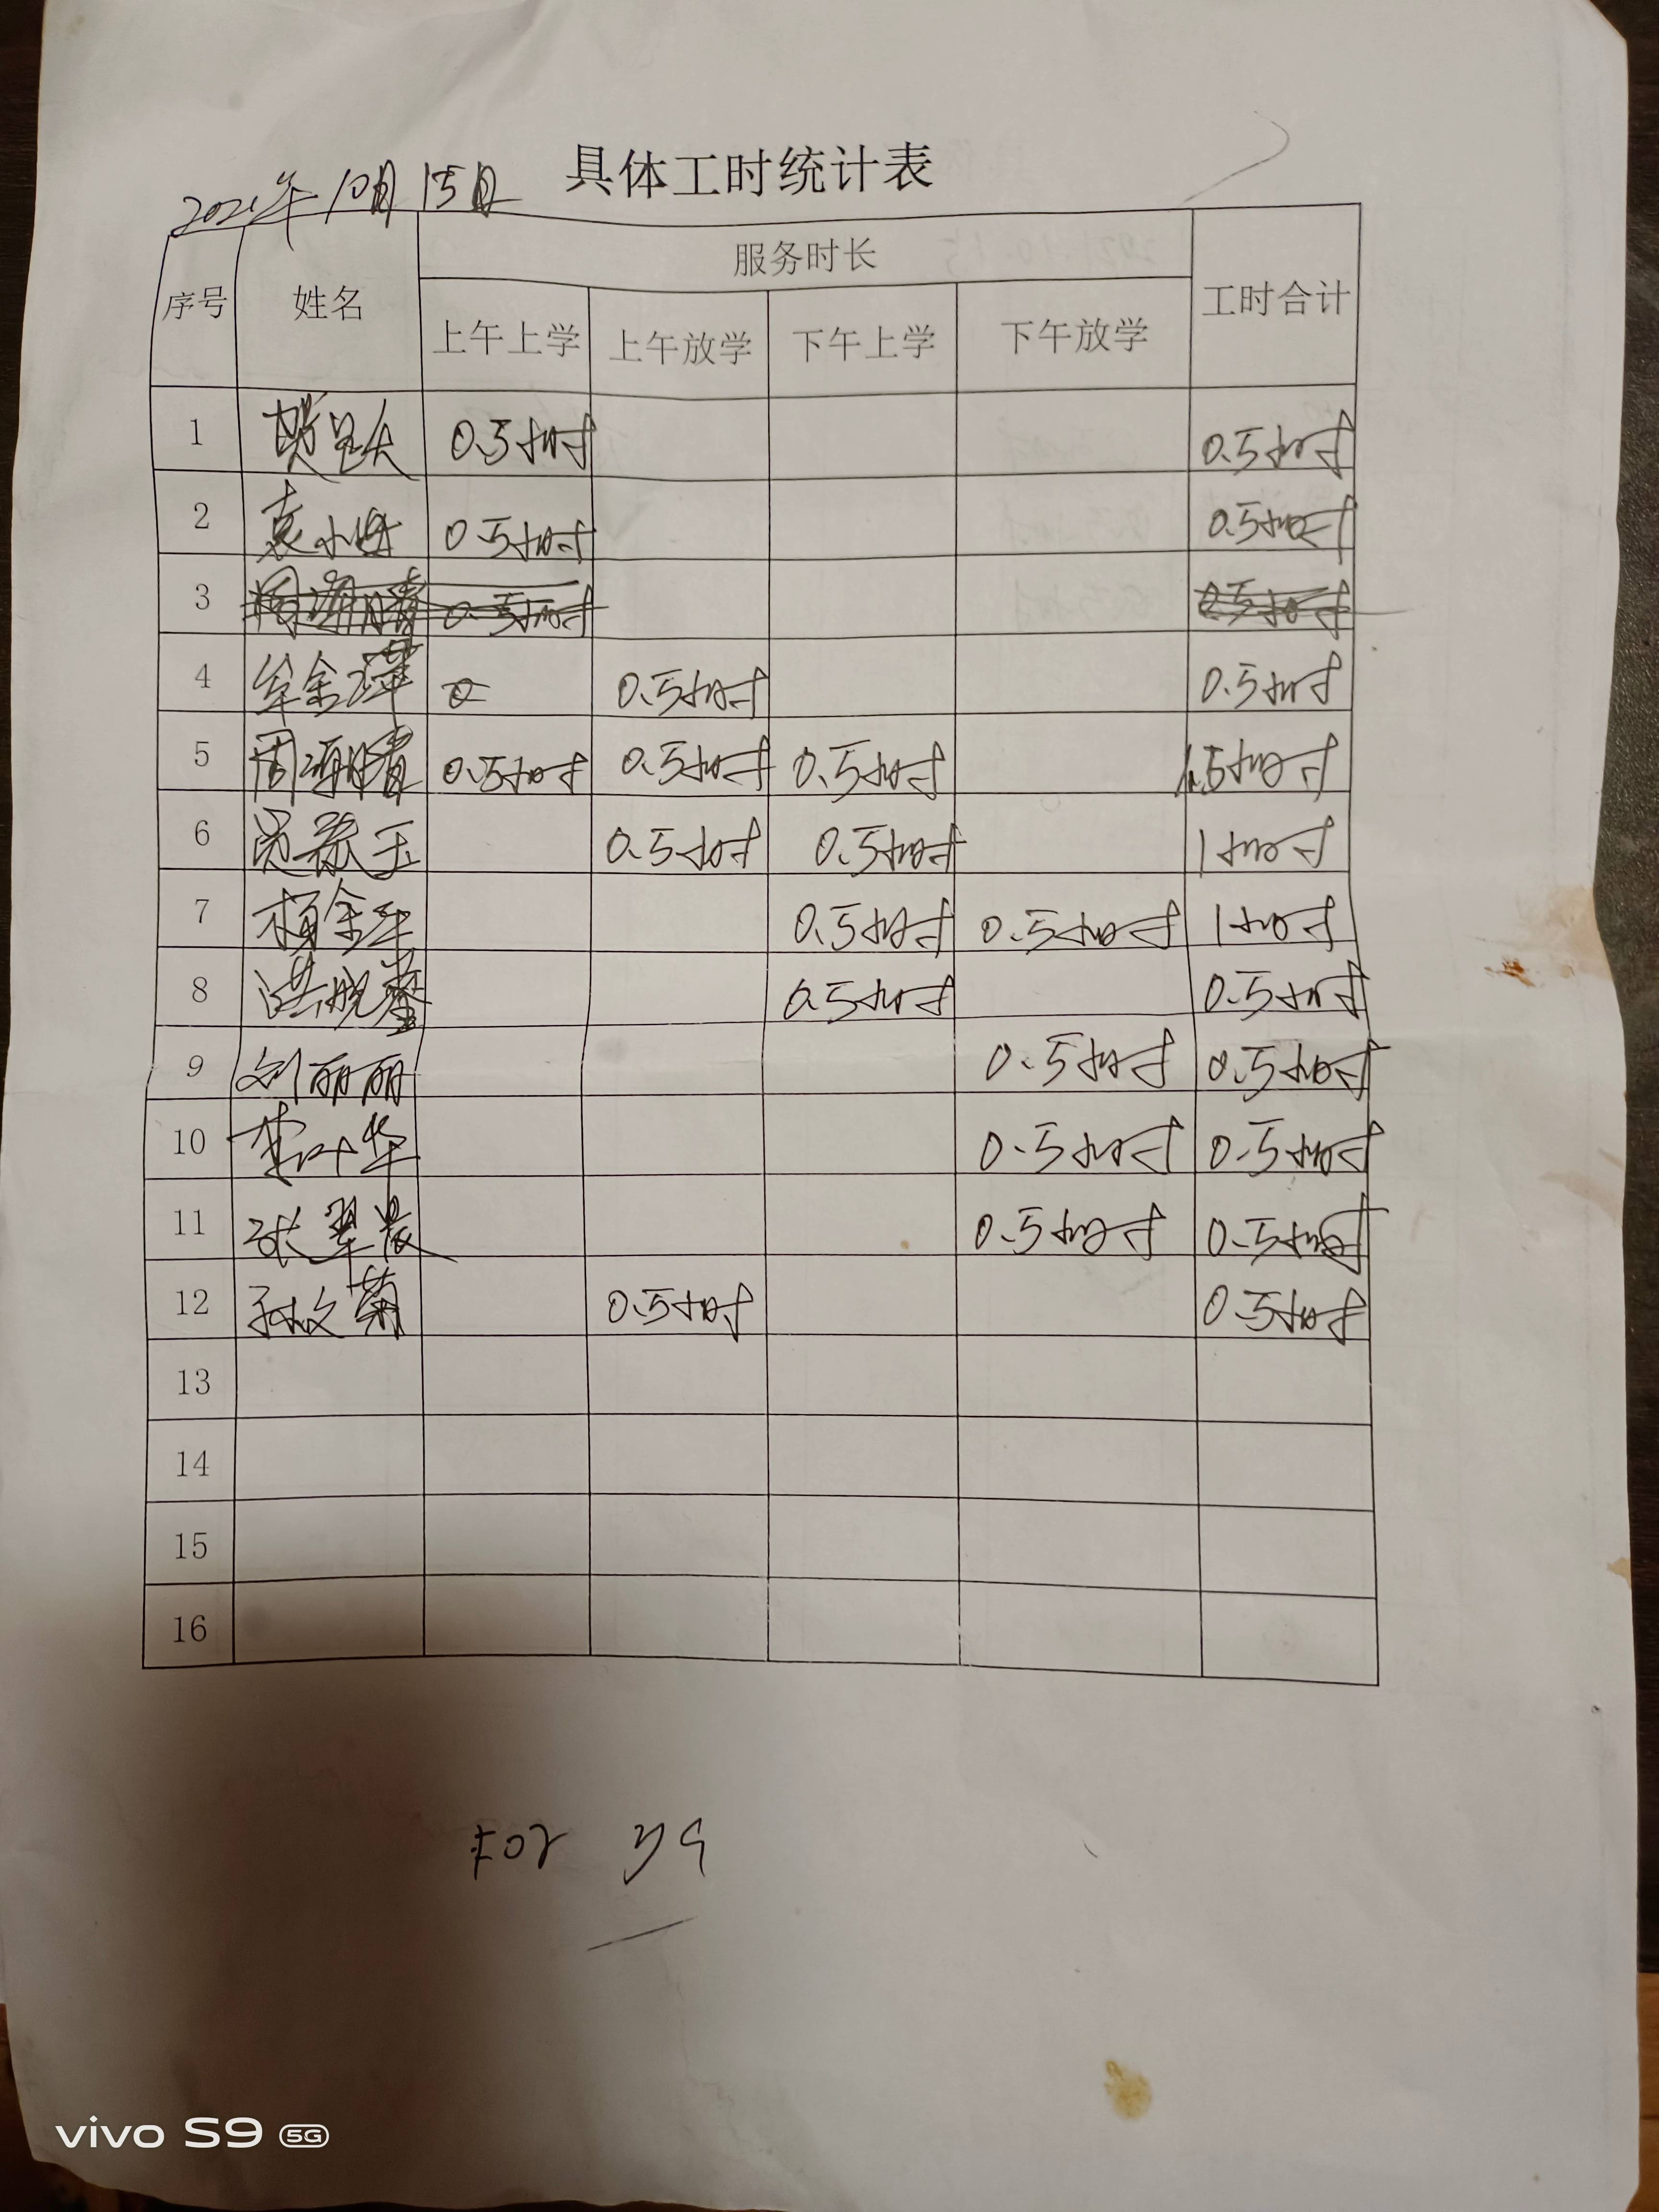 具体工时统计表
2021年10月15日
序号 姓名 服务时长 工时合计
上午上学 上午放学 下午上学 下午放学
1 0.5小时 0.5小时
2 袁小 0.5小时 0.5小时
3 周海晴 0.5小时 0.5小时
4 牟金萍 0 0.5小时 0.5小时
5 周海晴 0.5小时 0.5小时 0.5小时 1.5小时
6 玉 0.5小时 0.5小时 1小时
7 杨金 0.5小时 0.5小时 1小时
8 洪 0.5小时 0.5小时
9 刘丽丽 0.5小时 0.5小时
10 李叶华 0.5小时 0.5小时
11 张翠 0.5小时 0.5小时
12 孙文菊 0.5小时 0.5小时
13
14
15
16
vivo S9 5G